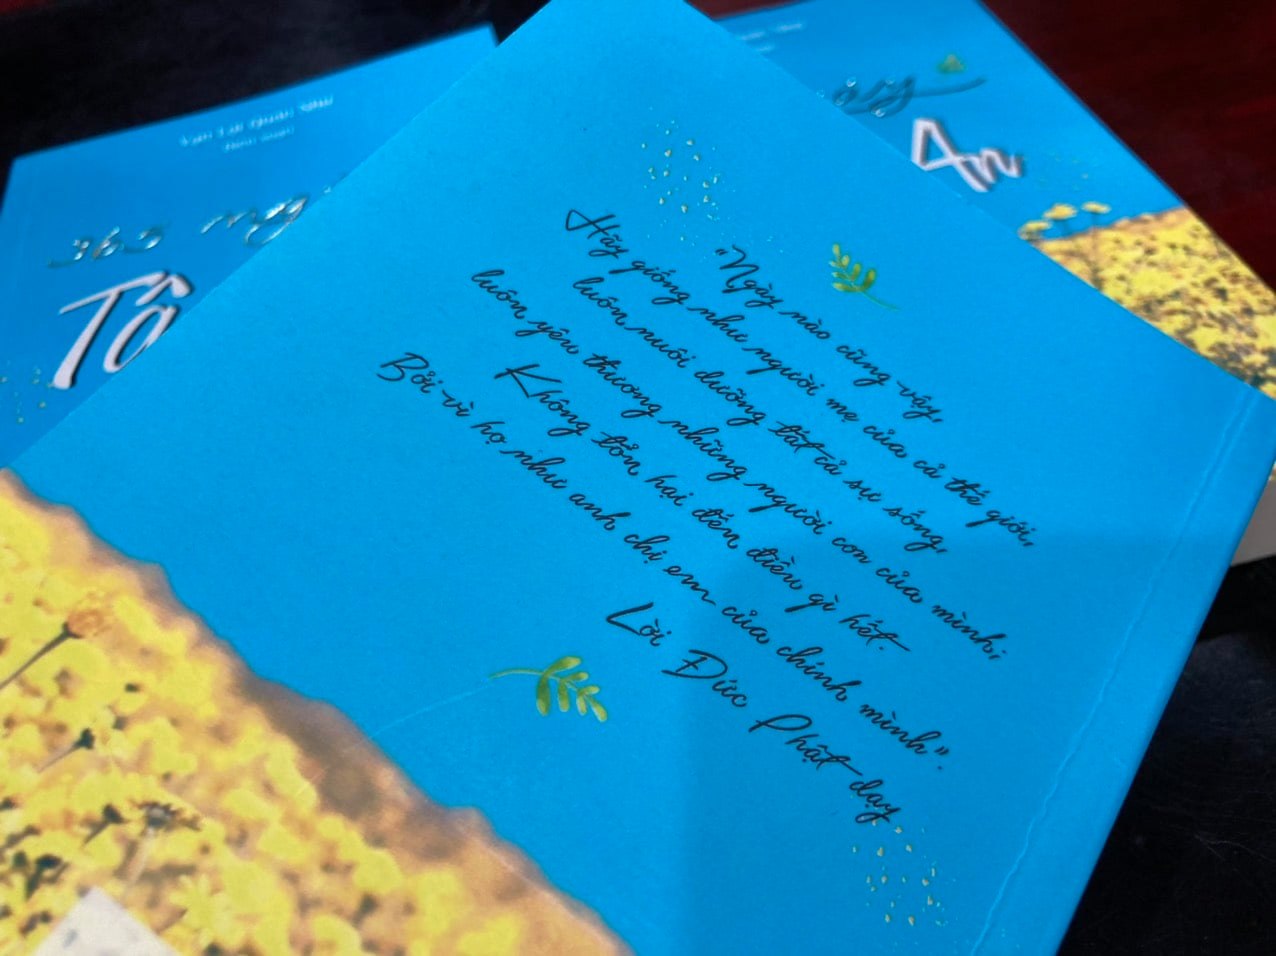 Vạn Lợi Quần Sinh
365 ng
Tâ
ày
An
"Ngày nào cũng vậy,
Hãy giống như người mẹ của cả thế giới,
luôn nuôi dưỡng tất cả sự sống,
luôn yêu thương những người con của mình;
Không tổn hại đến điều gì hết.
Bởi vì họ như anh chị em của chính mình".
Lời Đức Phật dạy